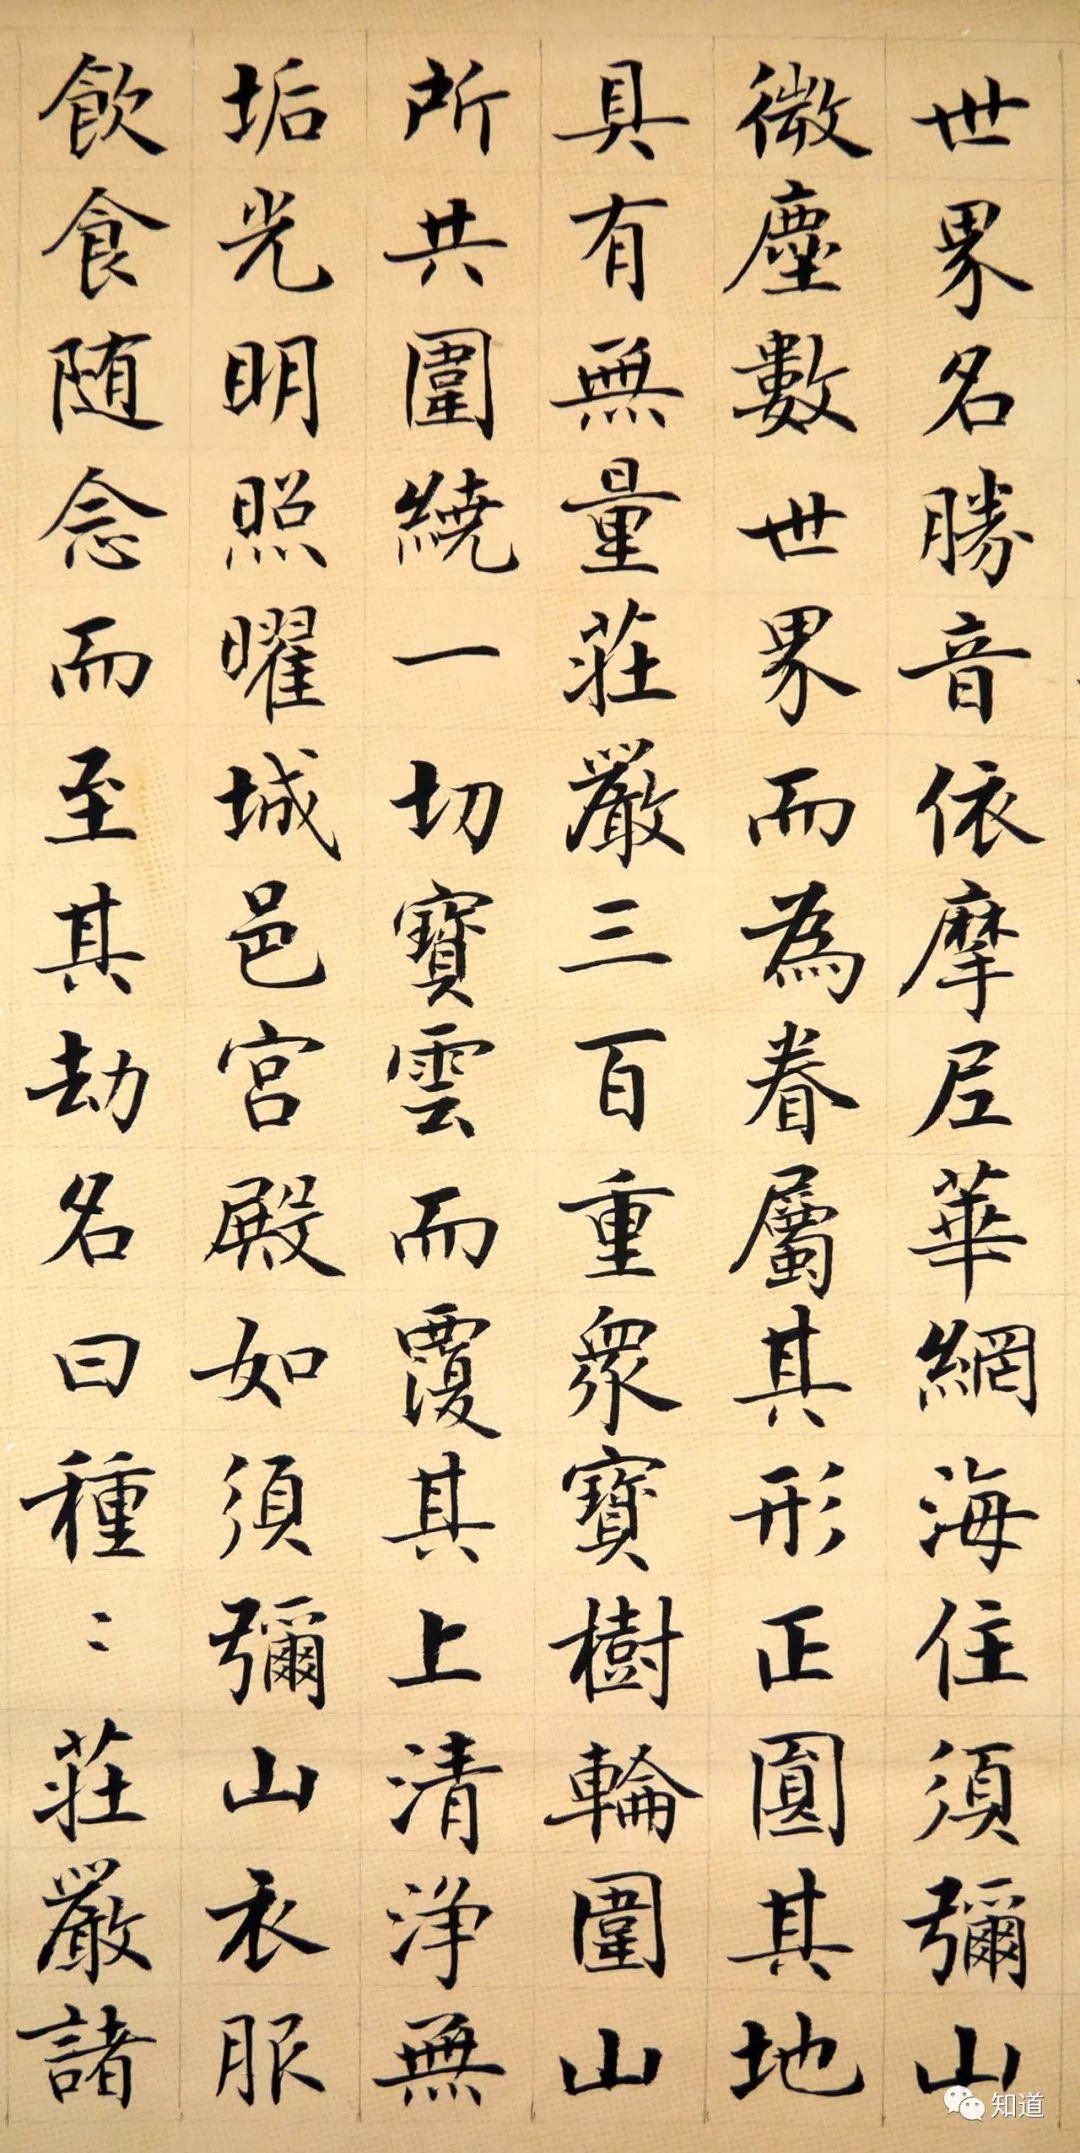 世界名勝音依摩尼華網海住須彌山
微塵數世界而為眷屬其形正圓其地
具有無量莊嚴三百重眾寶樹輪圍山
所共圍繞一切寶雲而覆其上清淨無
垢光明照曜城邑宮殿如須彌山衣服
飲食随念而至其劫名曰種〻莊嚴諸
知道